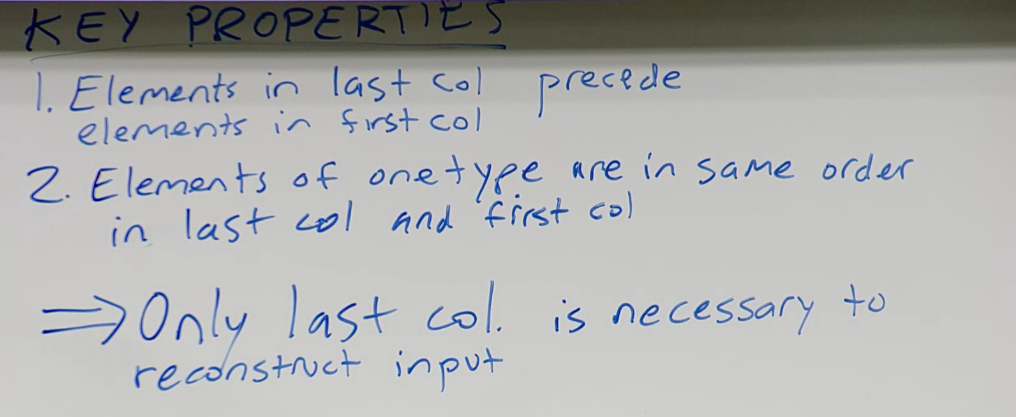 KEY PROPERTIES
1. Elements in last col precede
elements in first col
2. Elements of one type are in same order
in last col and first col
⇒ Only last col. is necessary to
reconstruct input